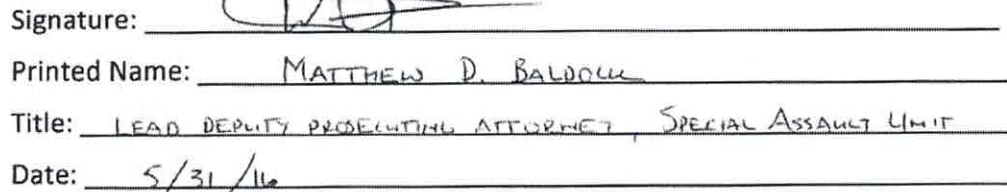 Signature:
Printed Name: MATTHEW D. BALDOCK
Title: LEAD DEPUTY PROSECUTING ATTORNEY, SPECIAL ASSAULT UNIT
Date: 5/31/16